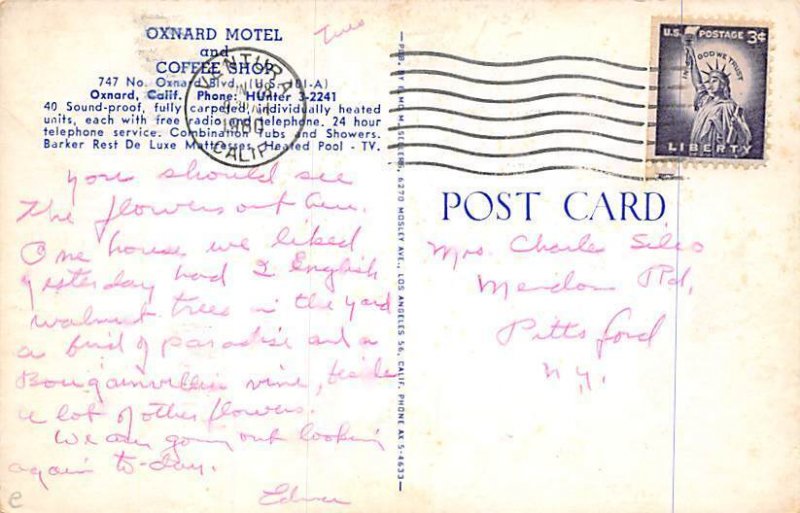 OXNARD MOTEL
and
COFFEE SHOP
747 No. Oxnard Blvd. (U.S. 101-A)
Oxnard, Calif. Phone: HUnter 3-2241
40 Sound-proof, fully carpeted, individually heated
units, each with free radio & telephone. 24 hour
telephone service. Combination Tubs and Showers.
Barker Rest De Luxe Mattresses. Heated Pool - TV.
Tues
VENTURA
1960
CALIF.
You should see
the flowers out here.
One house we liked
yesterday had 2 English
walnut trees in the yard
a bird of paradise and a
Bougainvillia vine, beside
a lot of other flowers.
We are going out looking
again to-day.
Edna
e
— PUB. BY ELMO M. SELLERS, 6270 MOSLEY AVE., LOS ANGELES 56, CALIF. PHONE AX 5-4633 —
U.S. POSTAGE 3¢
IN GOD WE TRUST
LIBERTY
POST CARD
Mrs. Charles Siles
Mendon Rd,
Pittsford
N.Y.